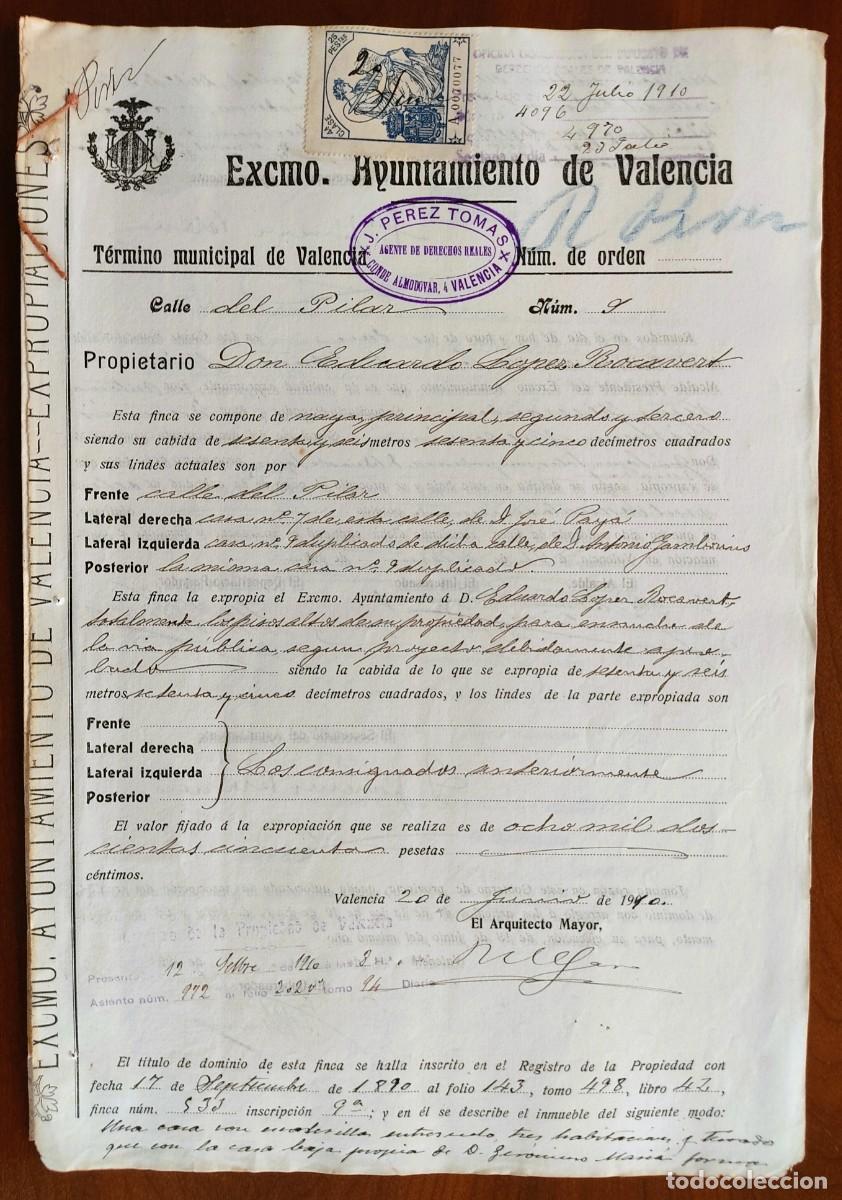 Perez
25 PESETAS
4ª CLASE
A.0070077
22 Julio 1910
4096
4970
23 Julio
Excmo. Ayuntamiento de Valencia
J. PEREZ TOMAS
AGENTE DE DERECHOS REALES
CONDE ALMODOVAR, 4 VALENCIA
Término municipal de Valencia Núm. de orden
Calle del Pilar Núm. 9
Propietario Don Eduardo Lopez Rocavert
Esta finca se compone de naya, principal, segundo y tercero
siendo su cabida de sesenta y seis metros sesenta y cinco decímetros cuadrados
y sus lindes actuales son por
Frente calle del Pilar
Lateral derecha casa nº 7 de esta calle, de D. José Payá
Lateral izquierda casa nº 9 duplicado de dicha calle, de D. Antonio
Posterior la misma casa nº 9 duplicado.
Esta finca la expropia el Excmo. Ayuntamiento á D. Eduardo Lopez Rocavert,
totalmente los pisos altos de su propiedad, para ensanche de
la via pública, segun proyecto debidamente apro-
bado siendo la cabida de lo que se expropia de sesenta y seis
metros, setenta y cinco decímetros cuadrados, y los lindes de la parte expropiada son
Frente
Lateral derecha
Lateral izquierda Los consignados anteriormente
Posterior
El valor fijado á la expropiación que se realiza es de ocho mil dos-
cientas cincuenta pesetas
céntimos.
Valencia 20 de Junio de 1910.
El Arquitecto Mayor,
de la Propiedad de Valencia
12 Setbre 1910 3
Asiento núm. 972 al folio tomo 94 Diario
El título de dominio de esta finca se halla inscrito en el Registro de la Propiedad con
fecha 17 de Septiembre de 1.890 al folio 143, tomo 498, libro 42,
finca núm. 533 inscripción 9ª; y en él se describe el inmueble del siguiente modo:
Una casa con escalerilla entresuelo tres habitaciones y terrado
que con la casa baja propia de D. Gerónimo forma
EXCMO. AYUNTAMIENTO DE VALENCIA--EXPROPIACIONES
todocoleccion